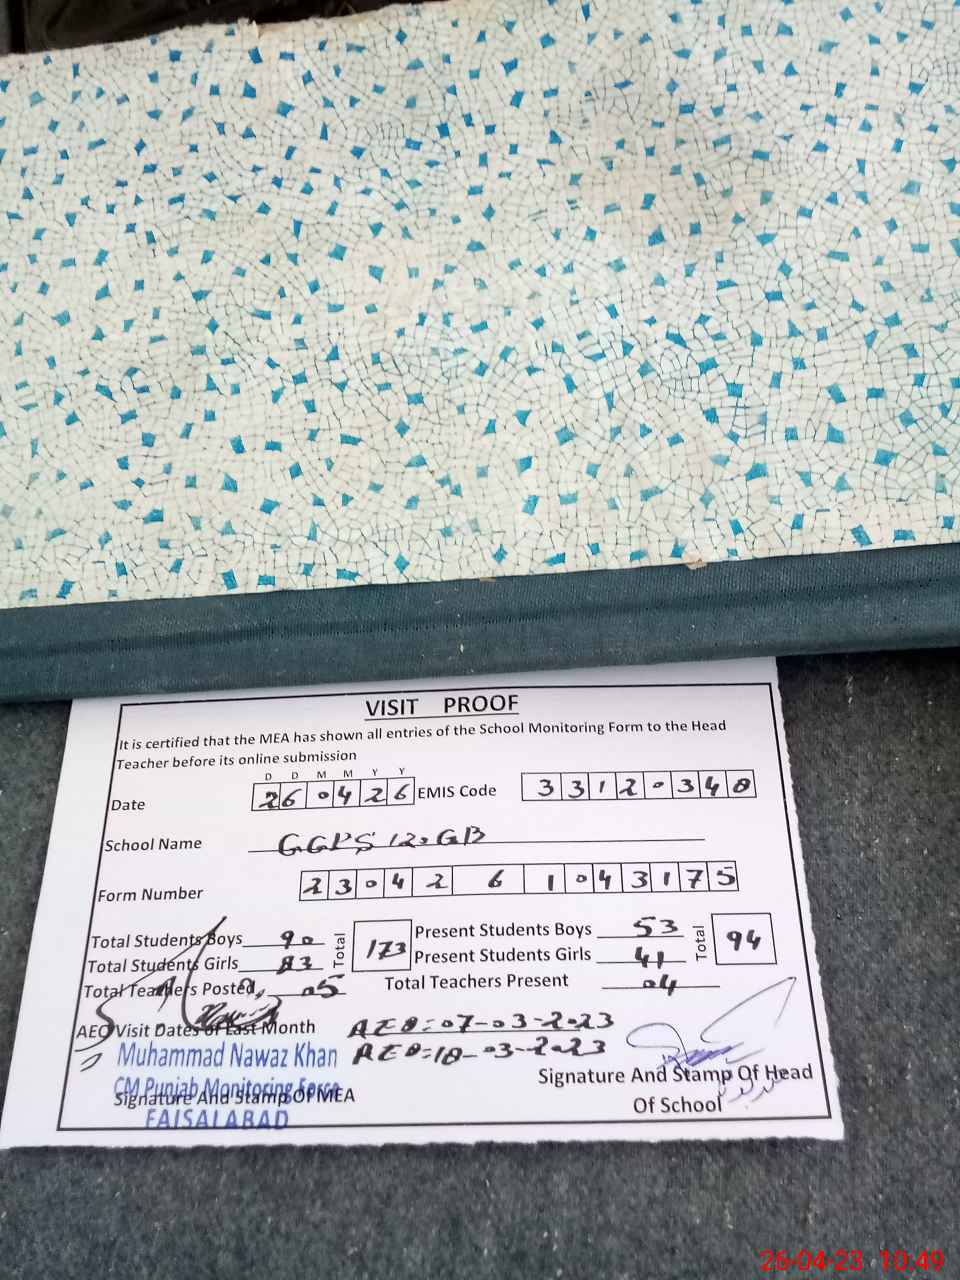 VISIT PROOF
It is certified that the MEA has shown all entries of the School Monitoring Form to the Head
Teacher before its online submission
D D M M Y Y
Date 26 04 26 EMIS Code 33120348
School Name GGPS 120 GB
Form Number 2304261043175
Total Students Boys 90 Total 173 Present Students Boys 53 Total 94
Total Students Girls 83 Present Students Girls 41
Total Teachers Posted 05 Total Teachers Present 04
AEO Visit Dates of Last Month AEO:07-03-2023
AEO:18-03-2023
Muhammad Nawaz Khan
CM Punjab Monitoring Force
FAISALABAD
Signature And Stamp Of MEA
Signature And Stamp Of Head
Of School
26-04-23 10:49